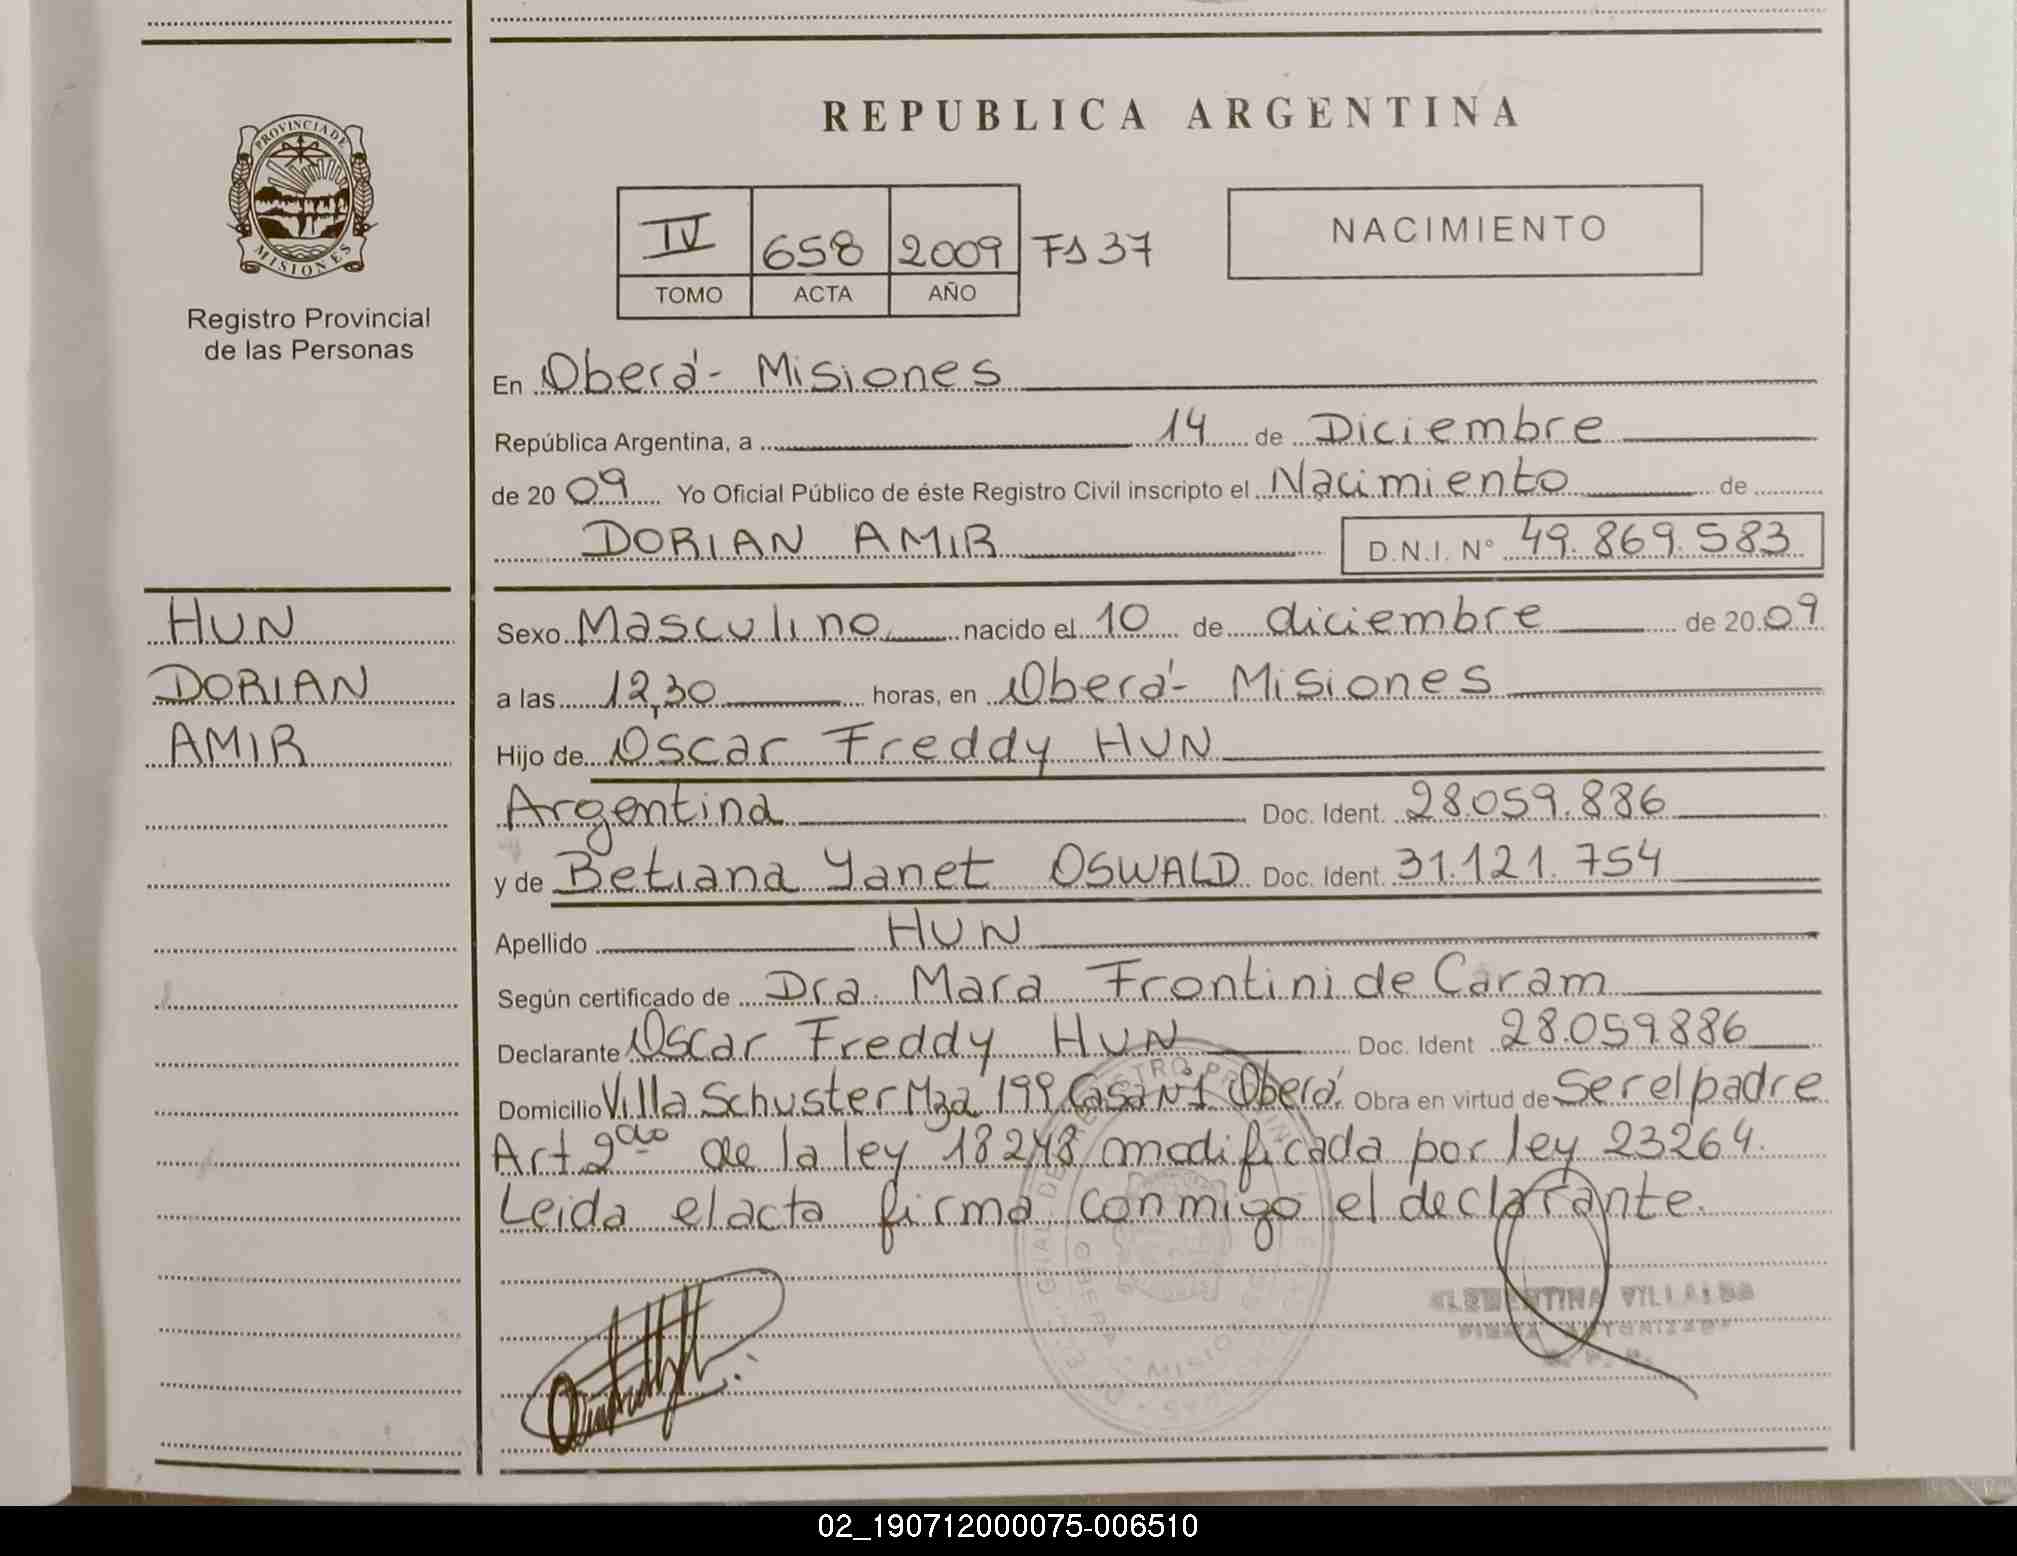 REPUBLICA ARGENTINA
PROVINCIA DE
MISIONES
Registro Provincial
de las Personas
IV 658 2009 Fs 37
TOMO ACTA AÑO
NACIMIENTO
En Oberá - Misiones
República Argentina, a 14 de Diciembre
de 20 09 Yo Oficial Público de éste Registro Civil inscripto el Nacimiento de
DORIAN AMIR D.N.I. N° 49.869.583
HUN
DORIAN
AMIR
Sexo Masculino nacido el 10 de diciembre de 20 09
a las 12,30 horas, en Oberá - Misiones
Hijo de Oscar Freddy HUN
Argentina Doc. Ident. 28.059.886
y de Betiana Yanet OSWALD Doc. Ident. 31.121.754
Apellido HUN
Según certificado de Dra. Mara Frontini de Caram
Declarante Oscar Freddy HUN Doc. Ident 28.059886
Domicilio Villa Schuster Mza 199 Casa N1 Oberá. Obra en virtud de Ser el padre
Art 2do de la ley 18248 modificada por ley 23264.
Leida el acta firma conmigo el declarante.
02_190712000075-006510